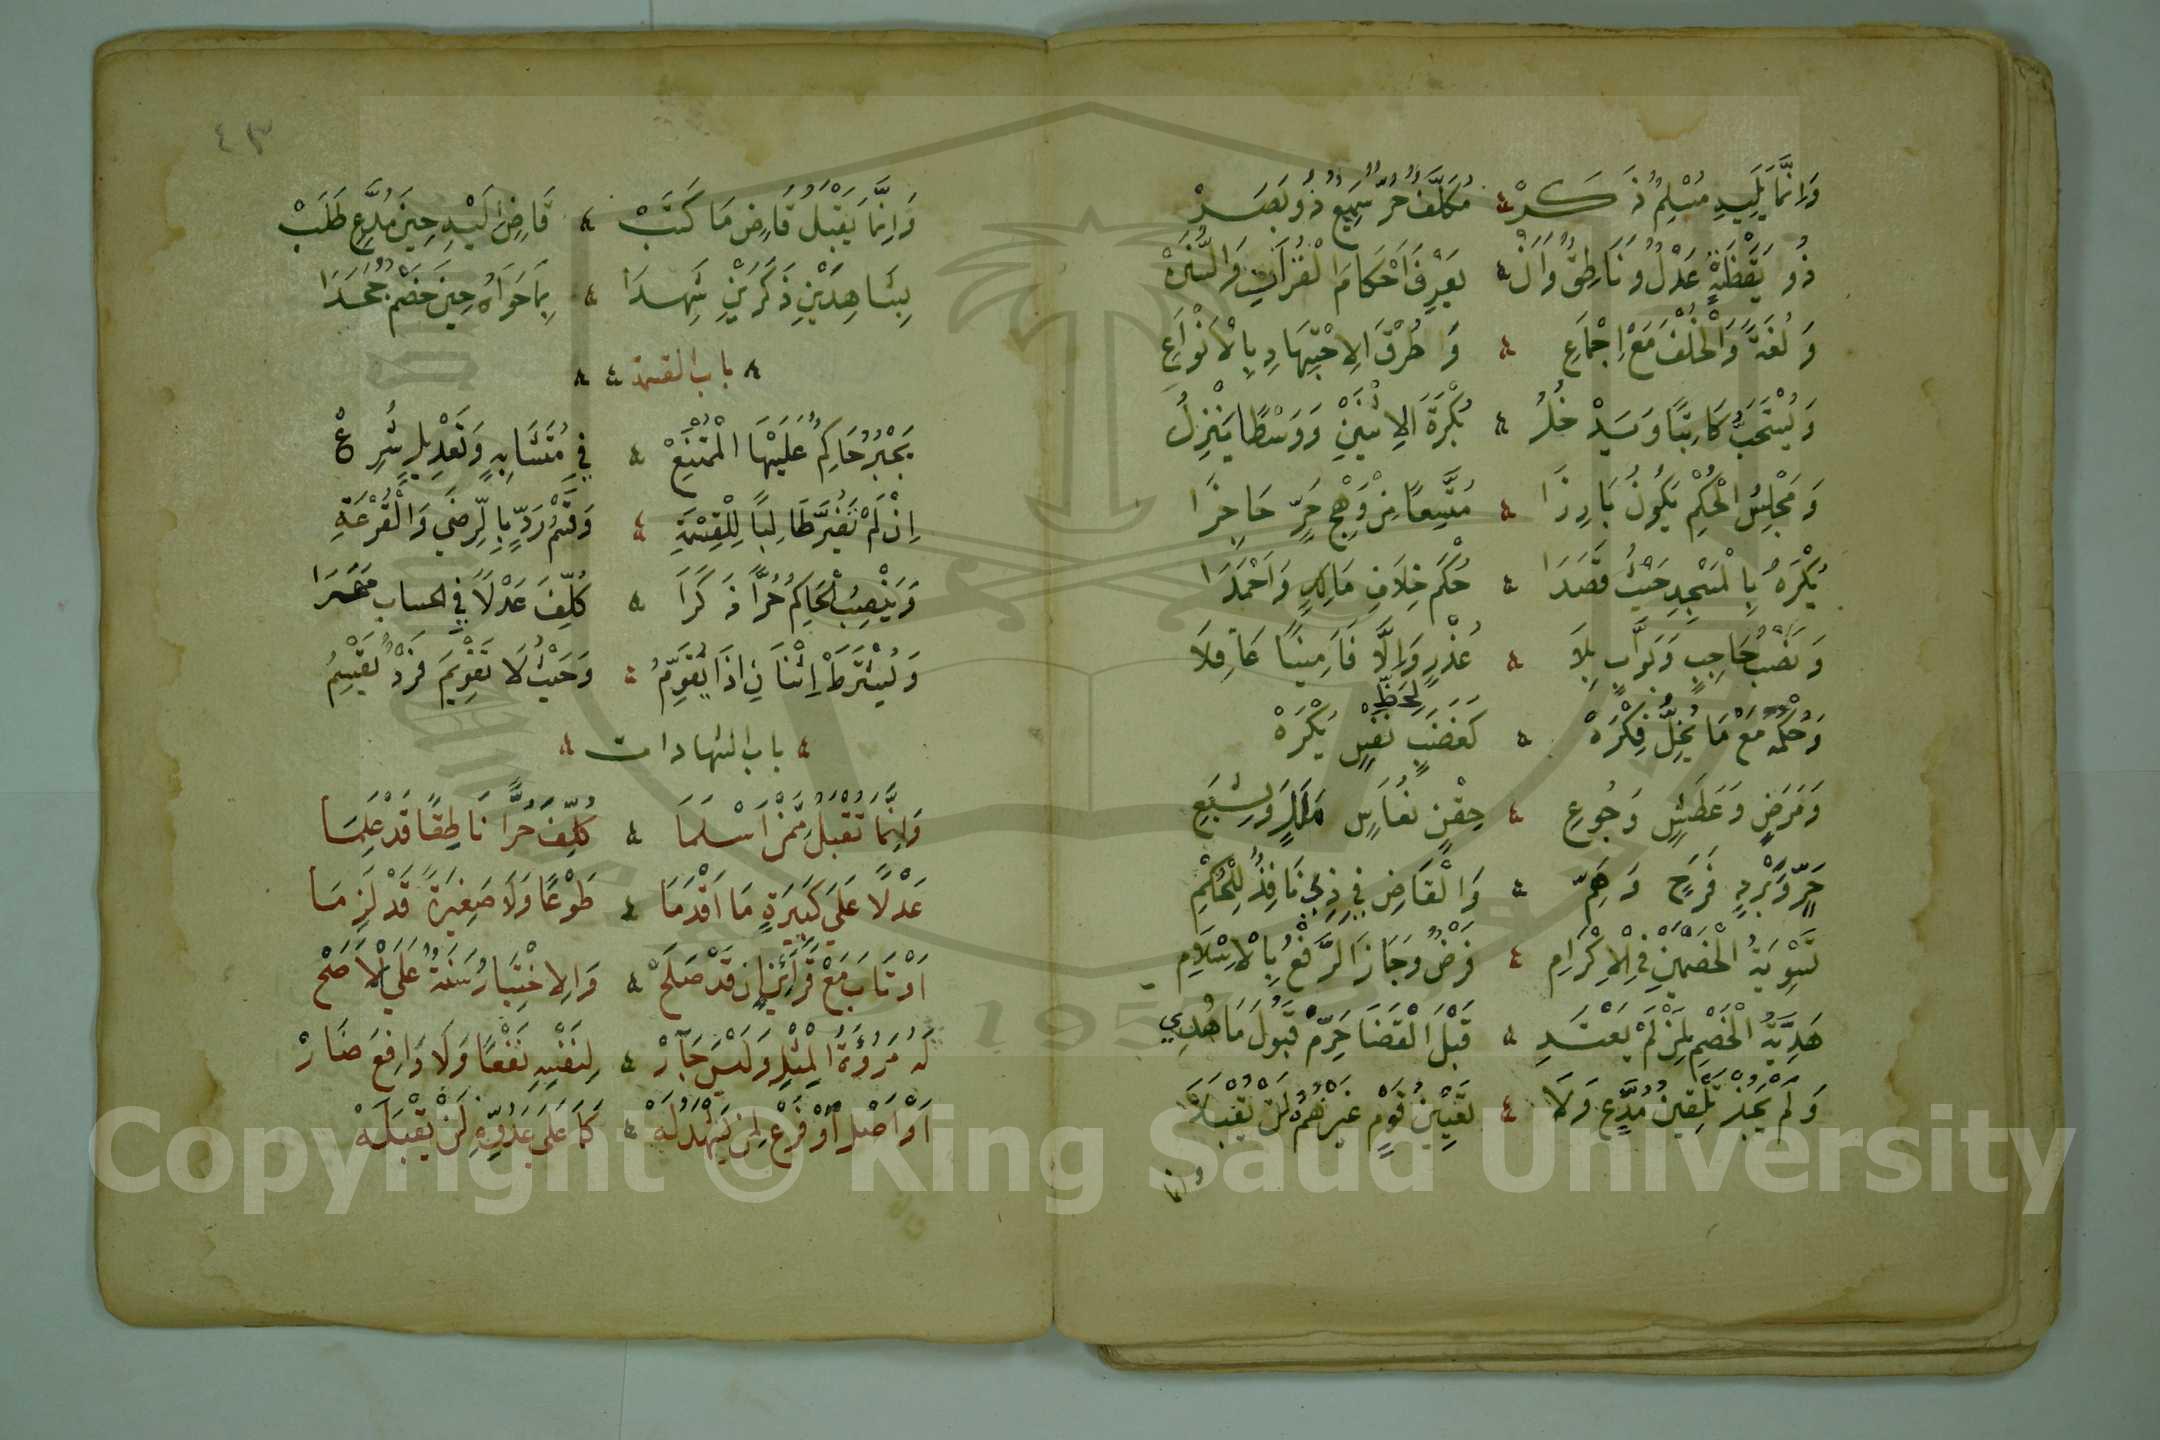 وَاِنَّمَا يَلِيهِ مُسْلِمٌ ذَكَرْ ۞ مُكَلَّفٌ حُرٌّ سَمِيعٌ ذُو بَصَرْ
ذُو يَقْظَةٍ عَدْلٌ وَنَاطِقٌ وَاَنْ ۞ يَعْرِفَ اَحْكَامَ الْقُرَآنِ وَالسُّنَنْ
وَلُغَةً وَالْخُلْفَ مَعْ اِجْمَاعِ ۞ وَطُرْقَ الِاجْتِهَادِ بِالْاَنْوَاعِ
وَيُسْتَحَبُّ كَاتِبًا وَيَدْخُلُ ۞ بُكْرَةَ الِاثْنَيْنِ وَوَسْطًا يَنْزِلُ
وَمَجْلِسُ الْحُكْمِ يَكُونُ بَارِزَا ۞ مُتَّسِعًا مِنْ وَهْجِ حَرٍّ حَاجِزَا
يُكْرَهُ بِالْمَسْجِدِ حَيْثُ قَصَدَا ۞ حُكْمَ خِلَافِ مَالِكٍ وَاَحْمَدَا
وَنَصْبُ حَاجِبٍ وَبَوَّابٍ بِلَا ۞ عُذْرٍ وَاِلَّا فَاَمِينًا عَاقِلَا
وَحُكْمُهُ مَعْ مَا يُخِلُّ فِكْرَهْ ۞ كَغَضَبٍ لِحَظِّ نَفْسٍ يُكْرَهْ
وَمَرَضٍ وَعَطَشٍ وَجُوعِ ۞ حِقْنٍ نُعَاسٍ مَلَلٍ وَشِبَعِ
حَرٍّ وَبَرْدٍ فَرَحٍ وَهَمِّ ۞ وَالْقَاضِ فِي ذِي نَافِذٌ لِلْحُكْمِ
تَسْوِيَةُ الْخَصْمَيْنِ فِي الْاِكْرَامِ ۞ فَرْضٌ وَجَازَ الرَّفْعُ بِالْاِسْلَامِ
هَدِيَّةُ الْخَصْمِ لِمَنْ لَمْ يَعْتَدِ ۞ قَبْلَ الْقَضَا حَرِّمْ قَبُولَ مَا هُدِي
وَلَمْ يَجُزْ تَلْقِينُ مُدَّعٍ وَلَا ۞ تَعْيِينُ قَوْمٍ غَيْرَهُمْ لَنْ يُقْبَلَا
وانما
٤٣
وَاِنَّمَا يَقْبَلُ قَاضٍ مَا كَتَبْ ۞ قَاضٍ اِلَيْهِ حِينَ مُدَّعٍ طَلَبْ
بِشَاهِدَيْنِ ذَكَرَيْنِ شَهِدَا ۞ بِمَا حَوَاهُ حِينَ خَصْمٌ جَحَدَا
باب القسمة
يُجْبِرُ حَاكِمٌ عَلَيْهَا الْمُمْتَنِعْ ۞ فِي مُتَشَابِهٍ وَتَعْدِيلٍ شُرِعْ
اِنْ لَمْ تَضُرَّ طَالِبًا لِلْقِسْمَةِ ۞ وَقَسْمُ رَدٍّ بِالرِّضَى وَالْقُرْعَةِ
وَيَنْصِبُ الْحَاكِمُ حُرًّا ذَكَرَا ۞ كُلِّفَ عَدْلًا فِي الحساب مَهَرَا
وَيُشْتَرَطْ اِثْنَانِ اِذَا يُقَوِّمُ ۞ وَحَيْثُ لَا تَقْوِيمَ فَرْدٌ يَقْسِمُ
باب الشهادات
وَاِنَّمَا تُقْبَلُ مِمَّنْ اَسْلَمَا ۞ كُلِّفَ حُرًّا نَاطِقًا قَدْ عَلِمَا
عَدْلًا عَلَى كَبِيرَةٍ مَا اَقْدَمَا ۞ طَوْعًا وَلَا صَغِيرَةً قَدْ لَزِمَا
اَوْ تَابَ مَعْ قَرَائِنٍ اِنْ قَدْ صَلَحْ ۞ وَالِاخْتِبَارُ سَنَةٌ عَلَى الْاَصَحْ
لَهُ مُرُوءَةُ الْمِثْلِ وَلَيْسَ جَآرْ ۞ لِنَفْسِهِ نَفْعًا وَلَا دَافِعَ ضَارْ
اَوْ اَصْلٌ اَوْ فَرْعٌ لِمَنْ يَشْهَدُ لَهْ ۞ كَمَا عَلَى عَدُوِّهِ لَنْ يُقْبَلَهْ
Copyright © King Saud University
1957